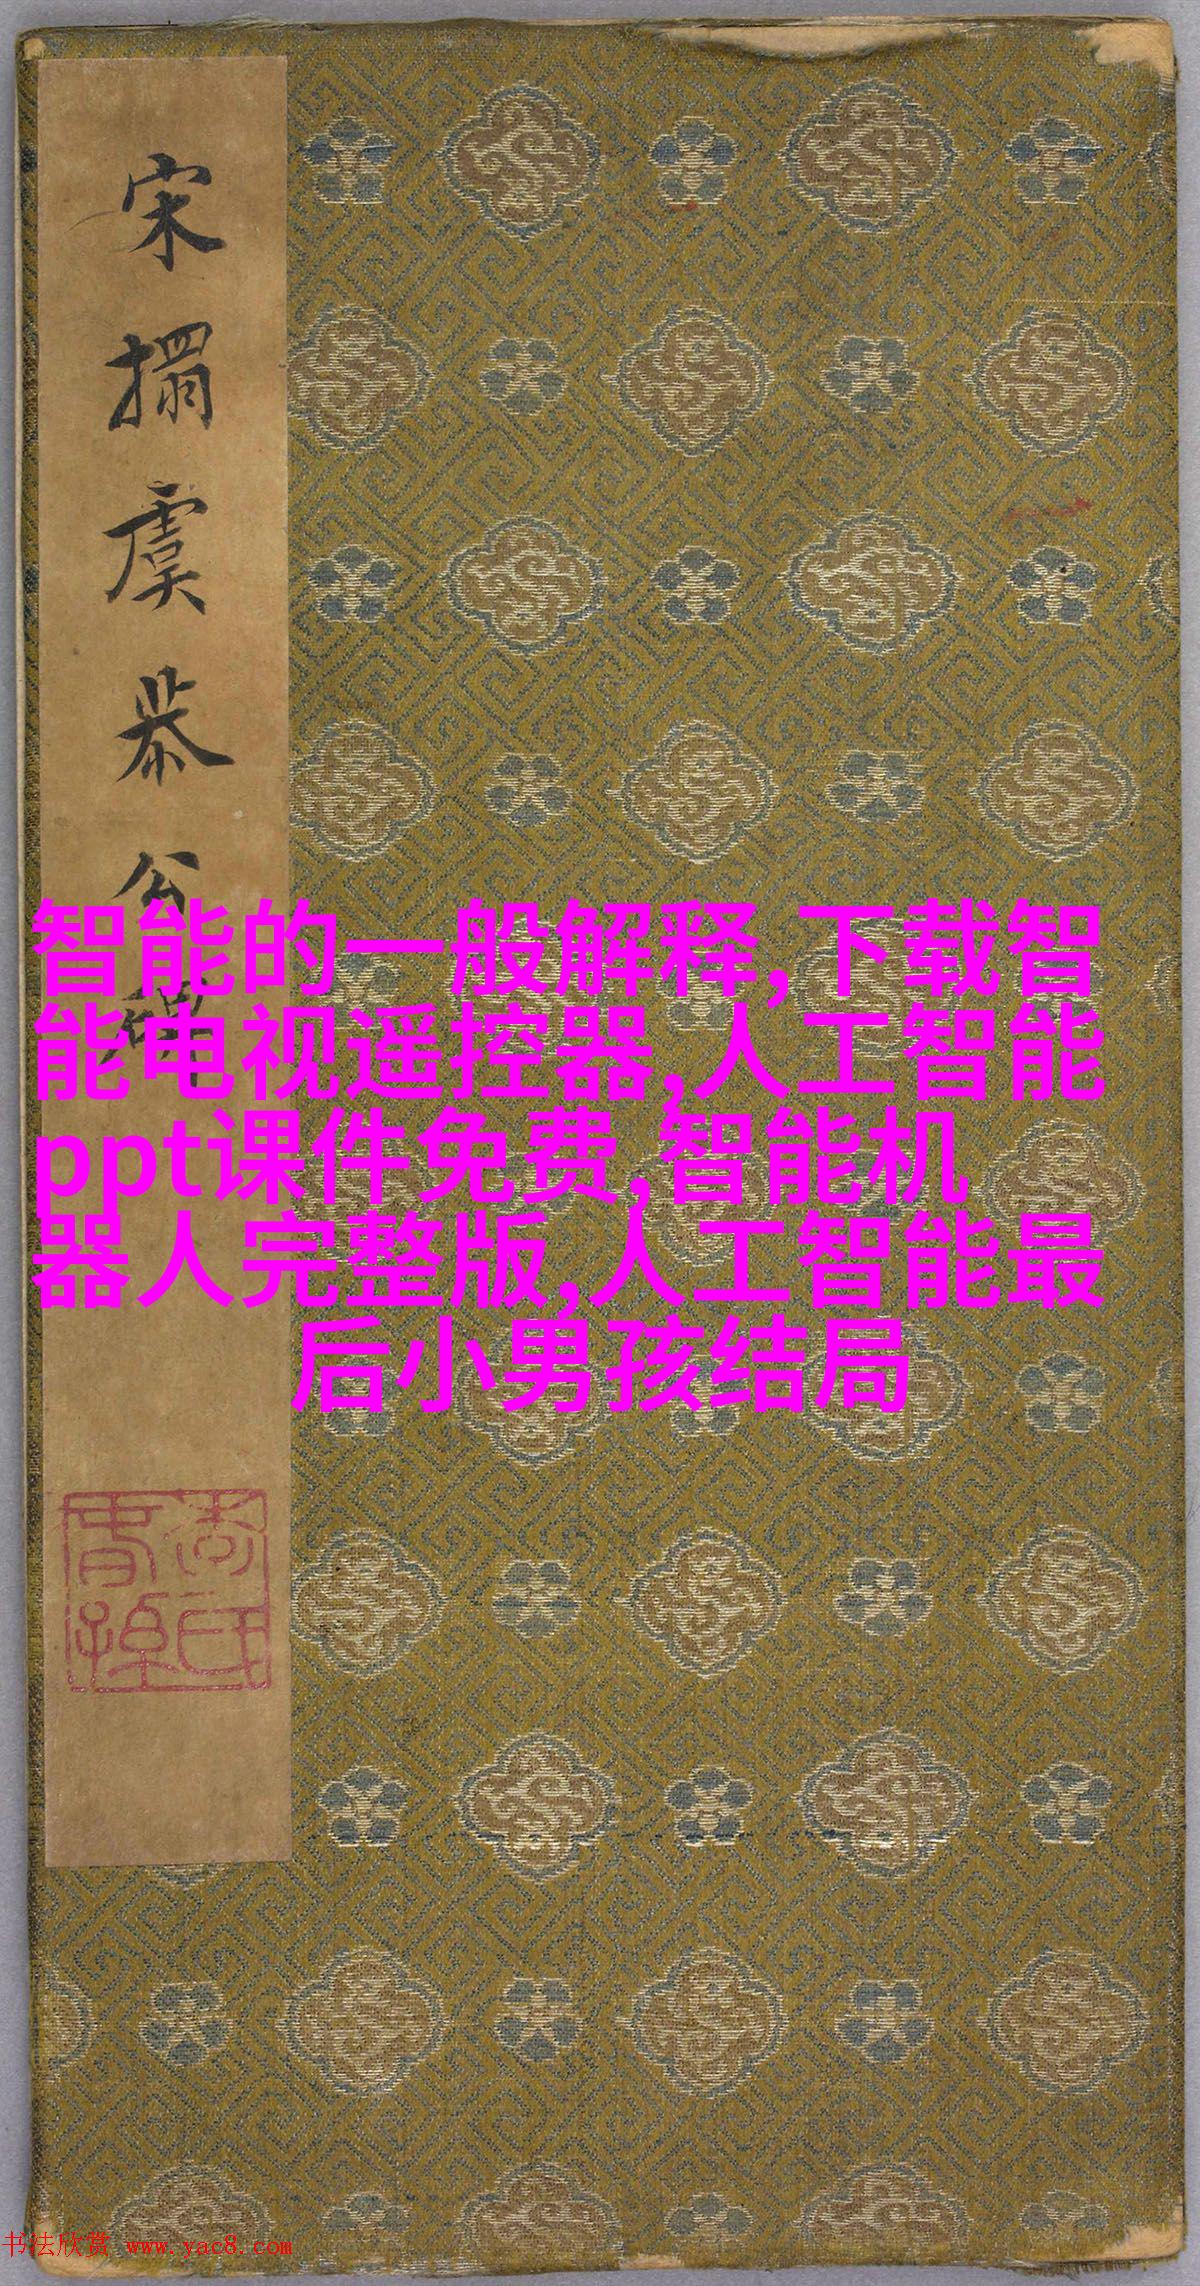 宋搨虞恭公碑
智能的一般解释,下载智
能电视遥控器,人工智能
ppt课件免费,智能机
器人完整版,人工智能最
后小男孩结局
书法欣赏 www.yac8.com